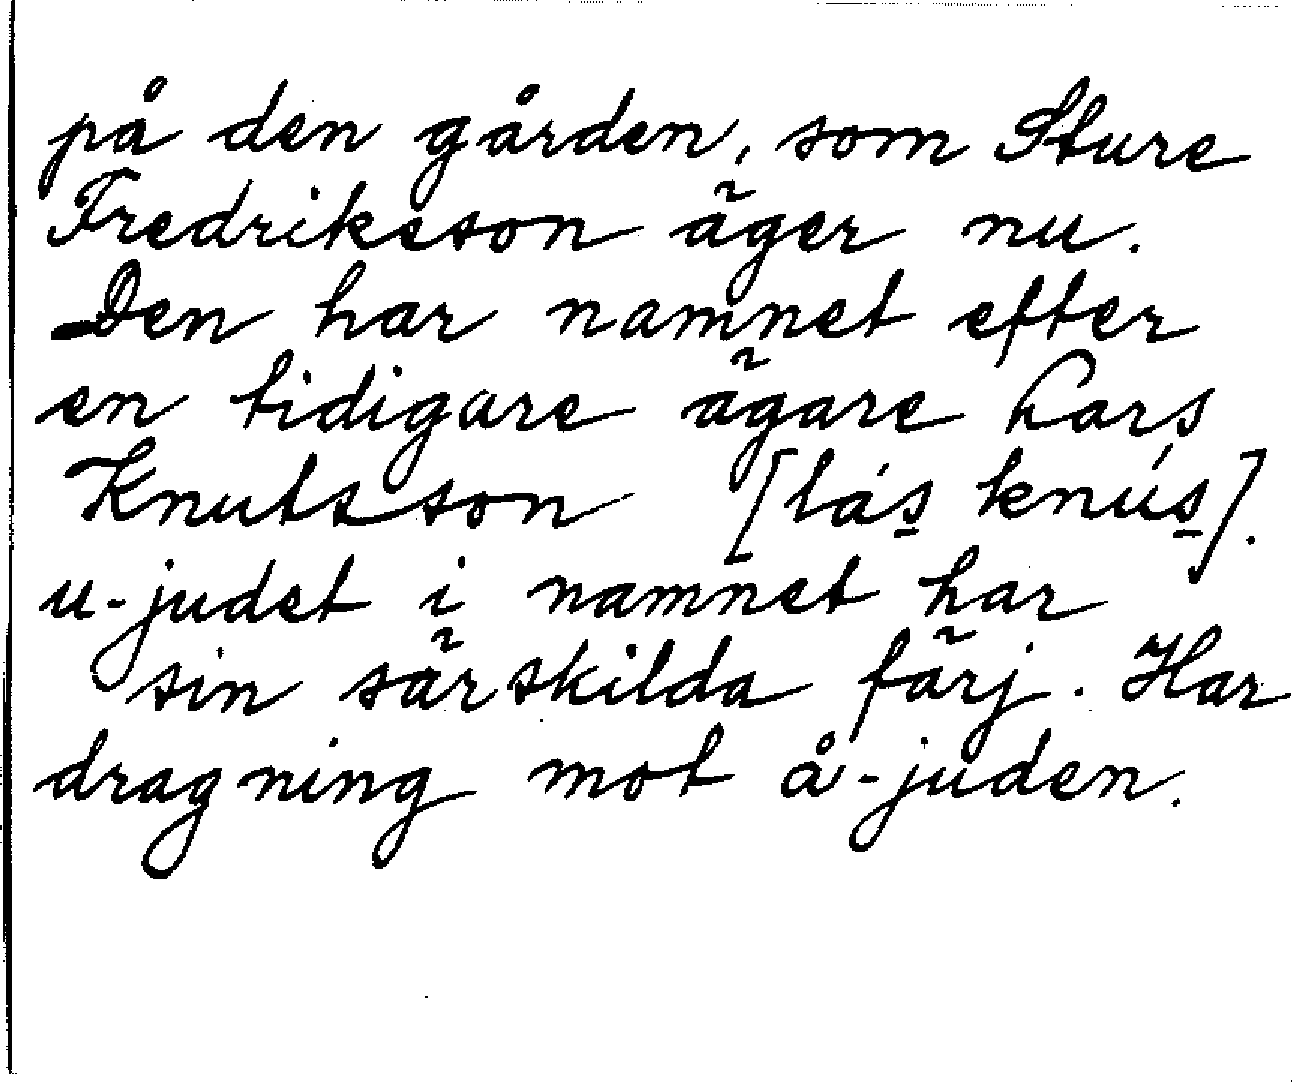 på den gården, som Sture
Fredriksson äger nu.
Den har namnet efter
en tidigare ägare Lars
Knutsson [lás̲ knús̲].
u-judet i namnet har
sin särskilda färj. Har
dragning mot å-juden.